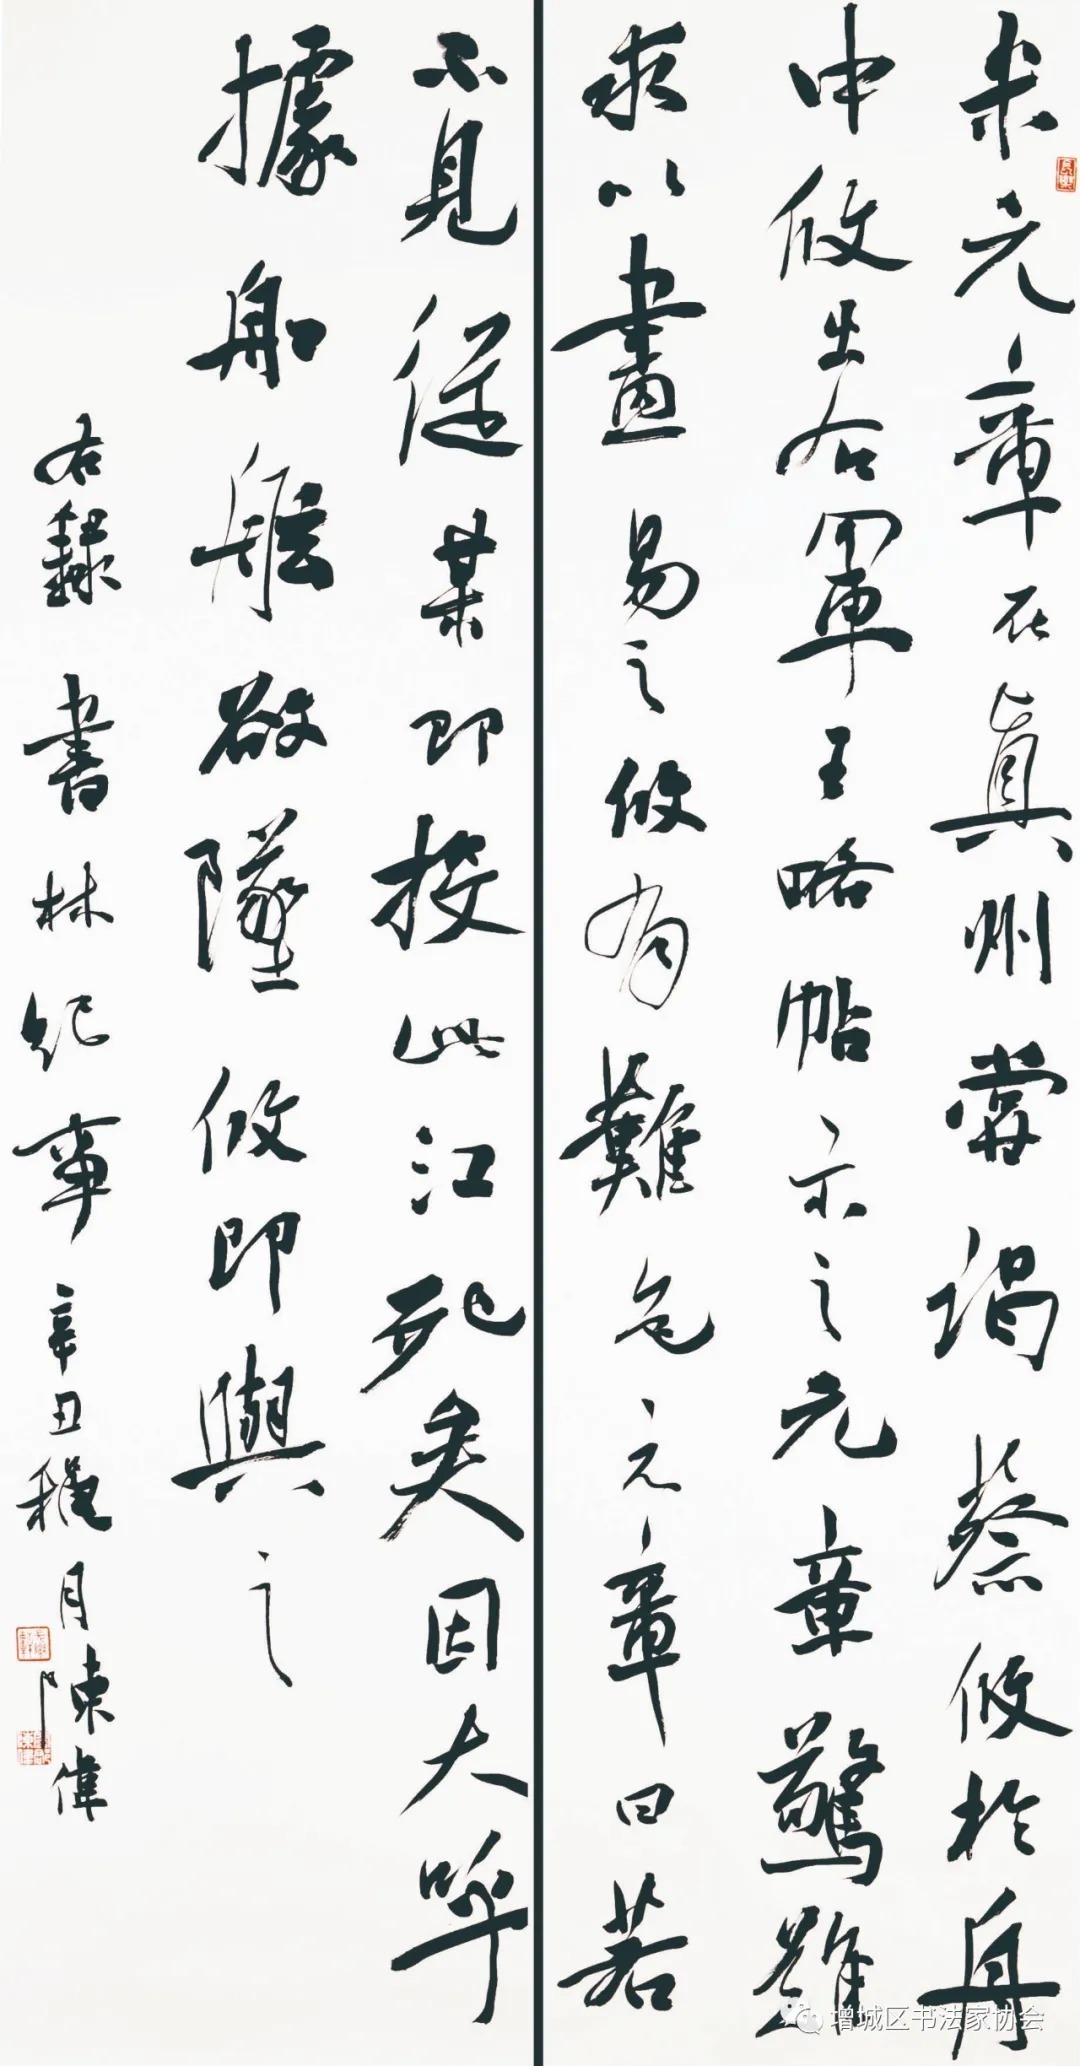 米元章在真州嘗謁蔡攸於舟
中攸出右軍王略帖示之元章驚歎
求以畫易之攸有難色元章曰若
不見從某即投此江死矣因大呼
據船舷欲墜攸即與之
右錄書林紀事辛丑穐月陳偉
增城区书法家协会